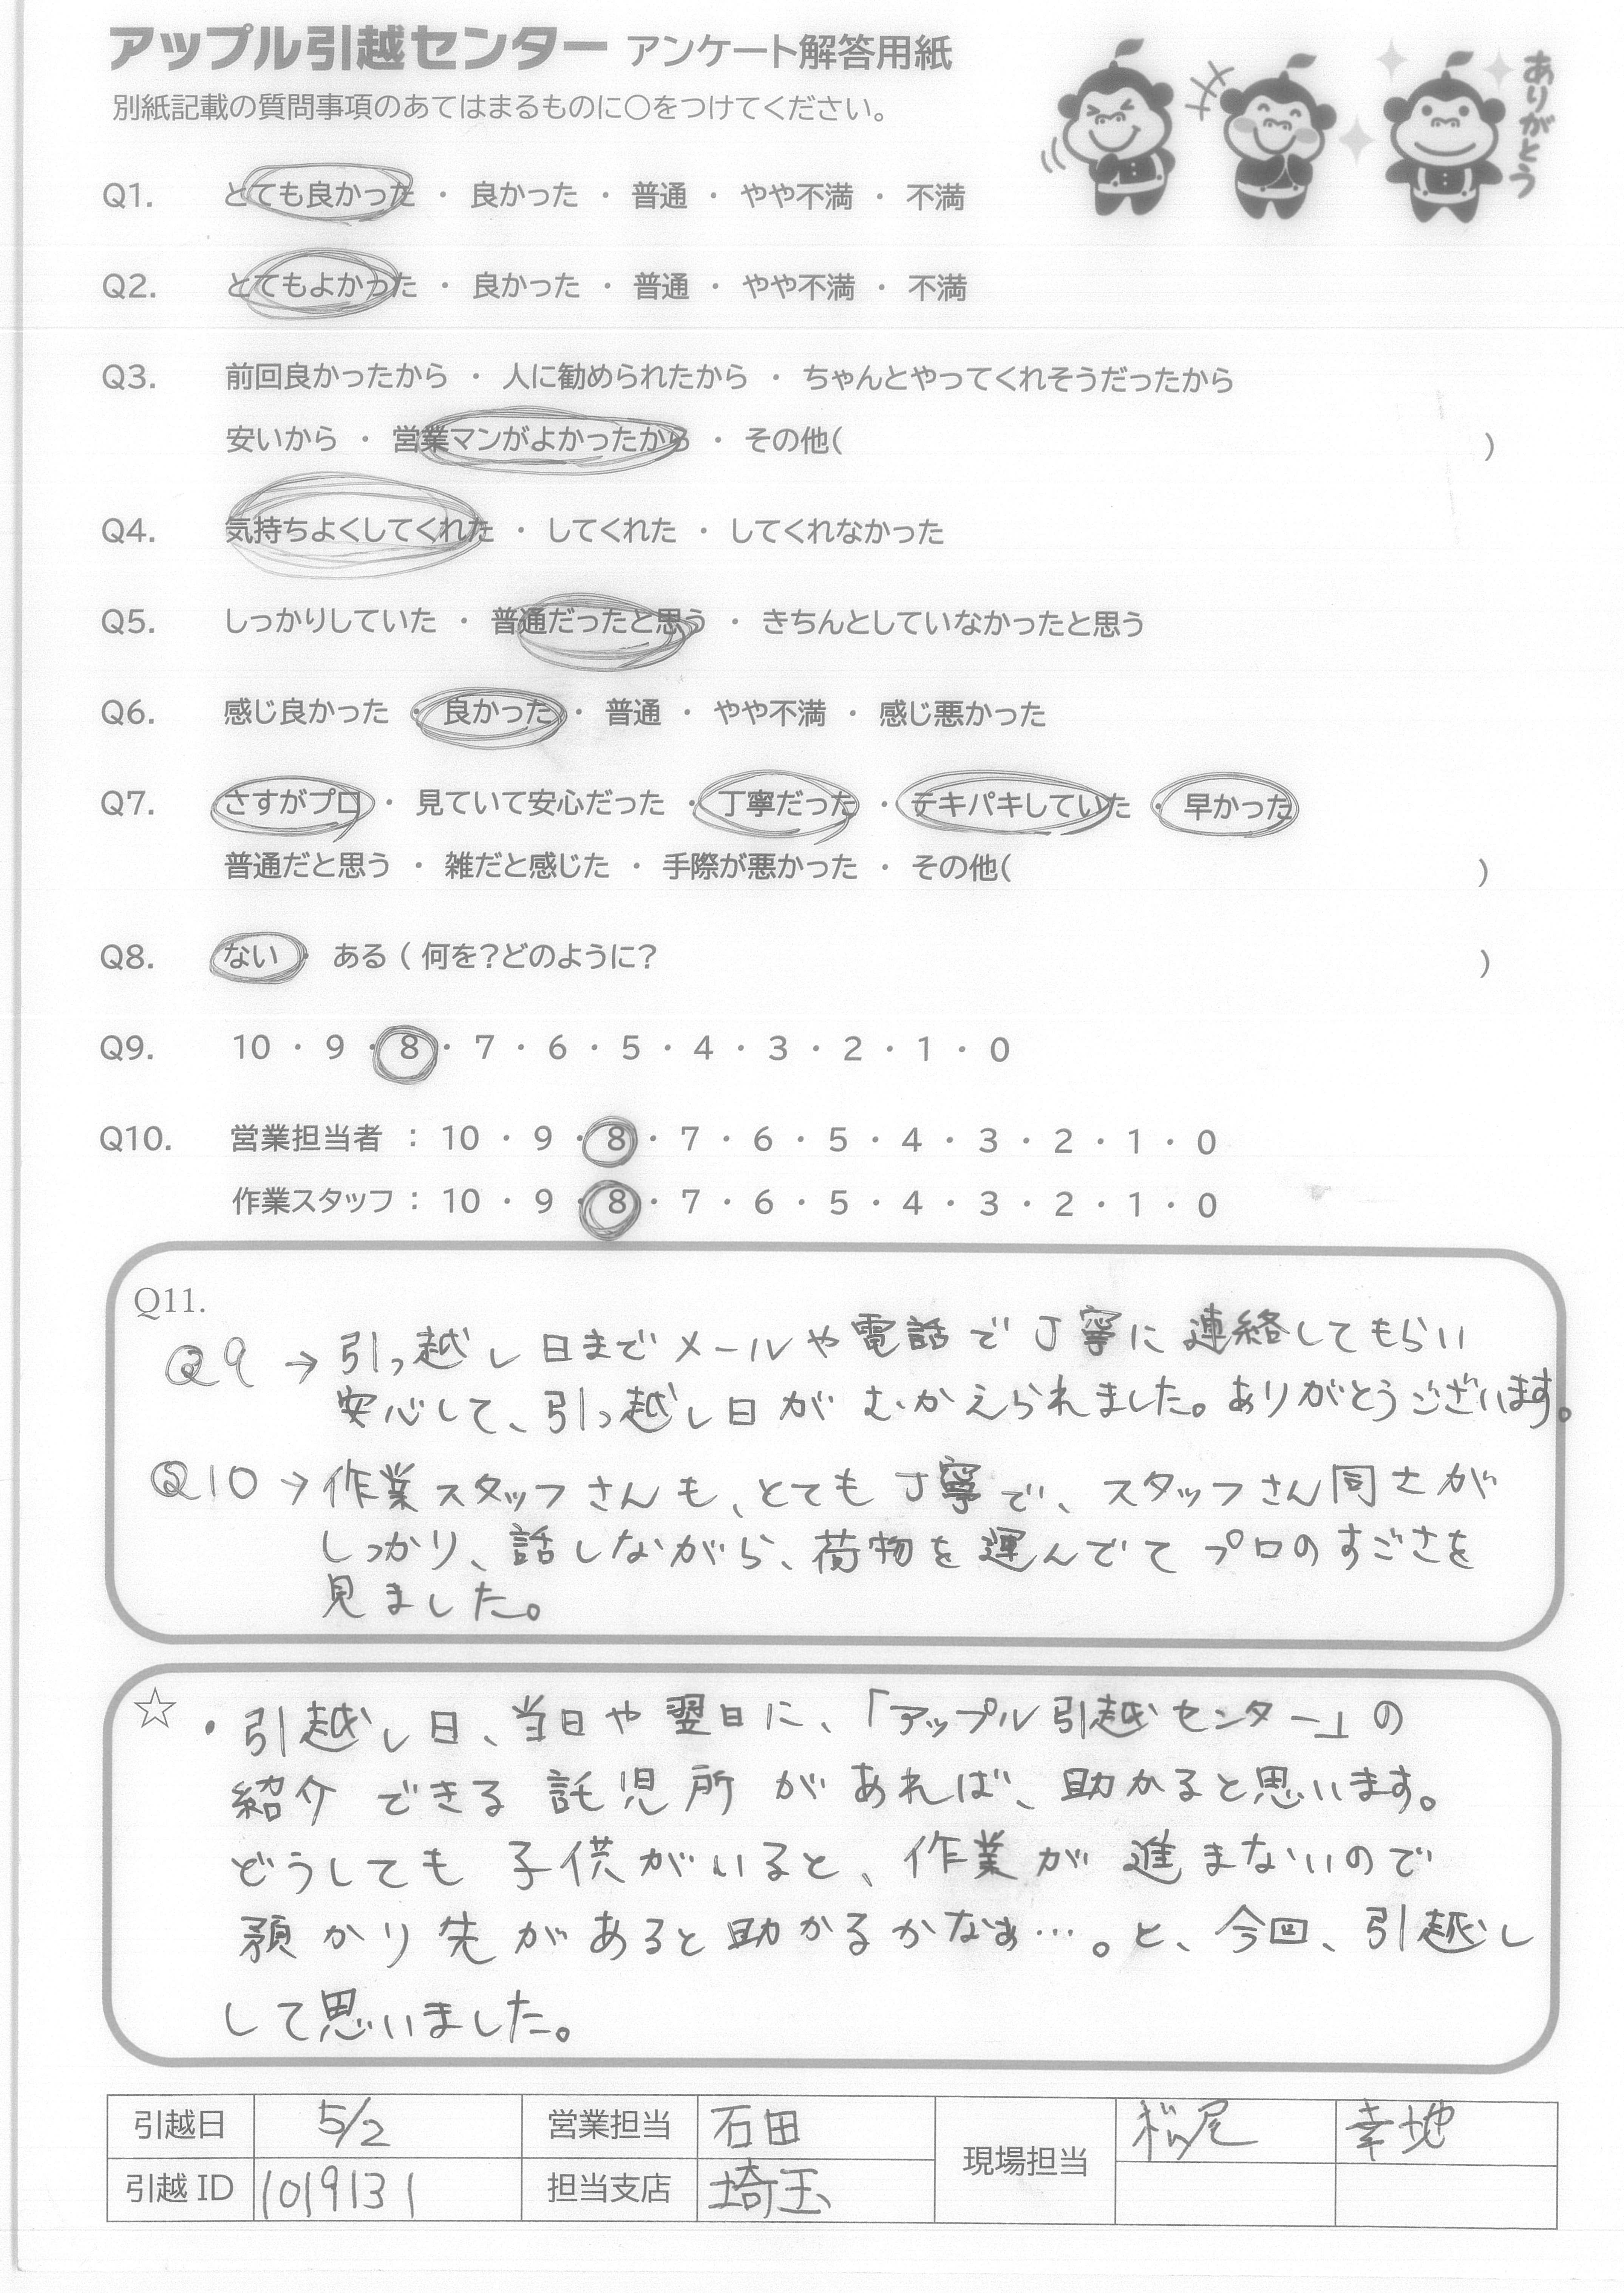 アップル引越センター アンケート解答用紙
別紙記載の質問事項のあてはまるものに○をつけてください。
ありがとう
Q1. とても良かった ・ 良かった ・ 普通 ・ やや不満 ・ 不満
Q2. とてもよかった ・ 良かった ・ 普通 ・ やや不満 ・ 不満
Q3. 前回良かったから ・ 人に勧められたから ・ ちゃんとやってくれそうだったから
安いから ・ 営業マンがよかったから ・ その他( )
Q4. 気持ちよくしてくれた ・ してくれた ・ してくれなかった
Q5. しっかりしていた ・ 普通だったと思う ・ きちんとしていなかったと思う
Q6. 感じ良かった ・ 良かった ・ 普通 ・ やや不満 ・ 感じ悪かった
Q7. さすがプロ ・ 見ていて安心だった ・ 丁寧だった ・ テキパキしていた ・ 早かった
普通だと思う ・ 雑だと感じた ・ 手際が悪かった ・ その他( )
Q8. ない ・ ある ( 何を?どのように? )
Q9. 10 ・ 9 ・ 8 ・ 7 ・ 6 ・ 5 ・ 4 ・ 3 ・ 2 ・ 1 ・ 0
Q10. 営業担当者 : 10 ・ 9 ・ 8 ・ 7 ・ 6 ・ 5 ・ 4 ・ 3 ・ 2 ・ 1 ・ 0
作業スタッフ : 10 ・ 9 ・ 8 ・ 7 ・ 6 ・ 5 ・ 4 ・ 3 ・ 2 ・ 1 ・ 0
Q11.
Q9 → 引っ越し日までメールや電話で丁寧に連絡してもらい
安心して、引っ越し日がむかえられました。ありがとうございます。
Q10 → 作業スタッフさんも、とても丁寧で、スタッフさん同士が
しっかり、話しながら、荷物を運んでてプロのすごさを
見ました。
☆ ・引越し日、当日や翌日に、「アップル引越センター」の
紹介できる託児所があれば、助かると思います。
どうしても子供がいると、作業が進まないので
預かり先があると助かるかなぁ…。と、今回、引越し
して思いました。
引越日 5/2 営業担当 石田 現場担当 松尾 幸地
引越ID 1019131 担当支店 埼玉